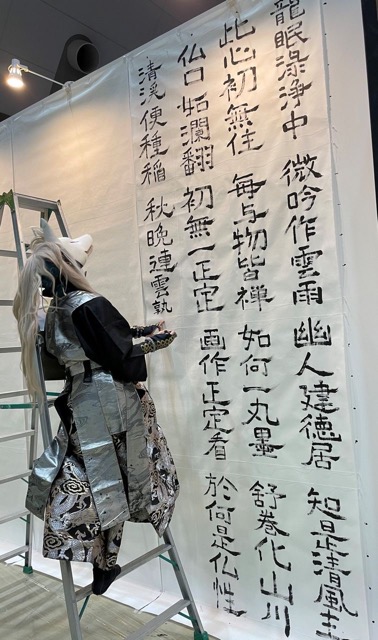 龍眠淥淨中 微吟作雲雨 幽人建德居 知是清風主
此心初無住 每与物皆禅 如何一丸墨 舒卷化山川
仏口如瀾翻 初無一正定 画作正定看 於何是仏性
清溪便種稻 秋晚連雲熟